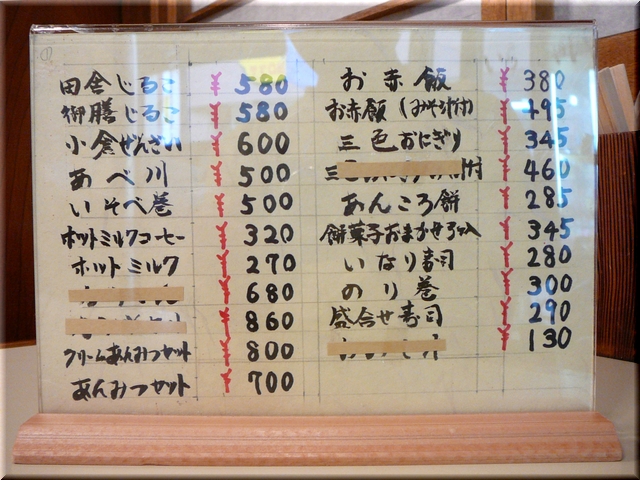 田舎じるこ ¥ 580
御膳じるこ ¥ 580
小倉ぜんざい ¥ 600
あべ川 ¥ 500
いそべ巻 ¥ 500
ホットミルクコーヒー ¥ 320
ホットミルク ¥ 270
¥ 680
¥ 860
クリームあんみつセット ¥ 800
あんみつセット ¥ 700
お赤飯 ¥ 380
お赤飯(みそ汁付) ¥ 495
三色おにぎり ¥ 345
付 ¥ 460
あんころ餅 ¥ 285
餅菓子おまかせ3ヶ入 ¥ 345
いなり寿司 ¥ 280
のり巻 ¥ 300
盛合せ寿司 ¥ 290
¥ 130